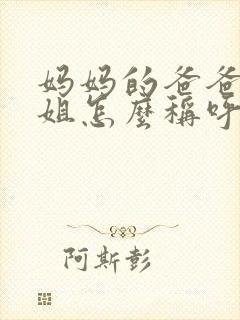 妈妈的爸爸
姐怎麼稱呼
阿斯彭